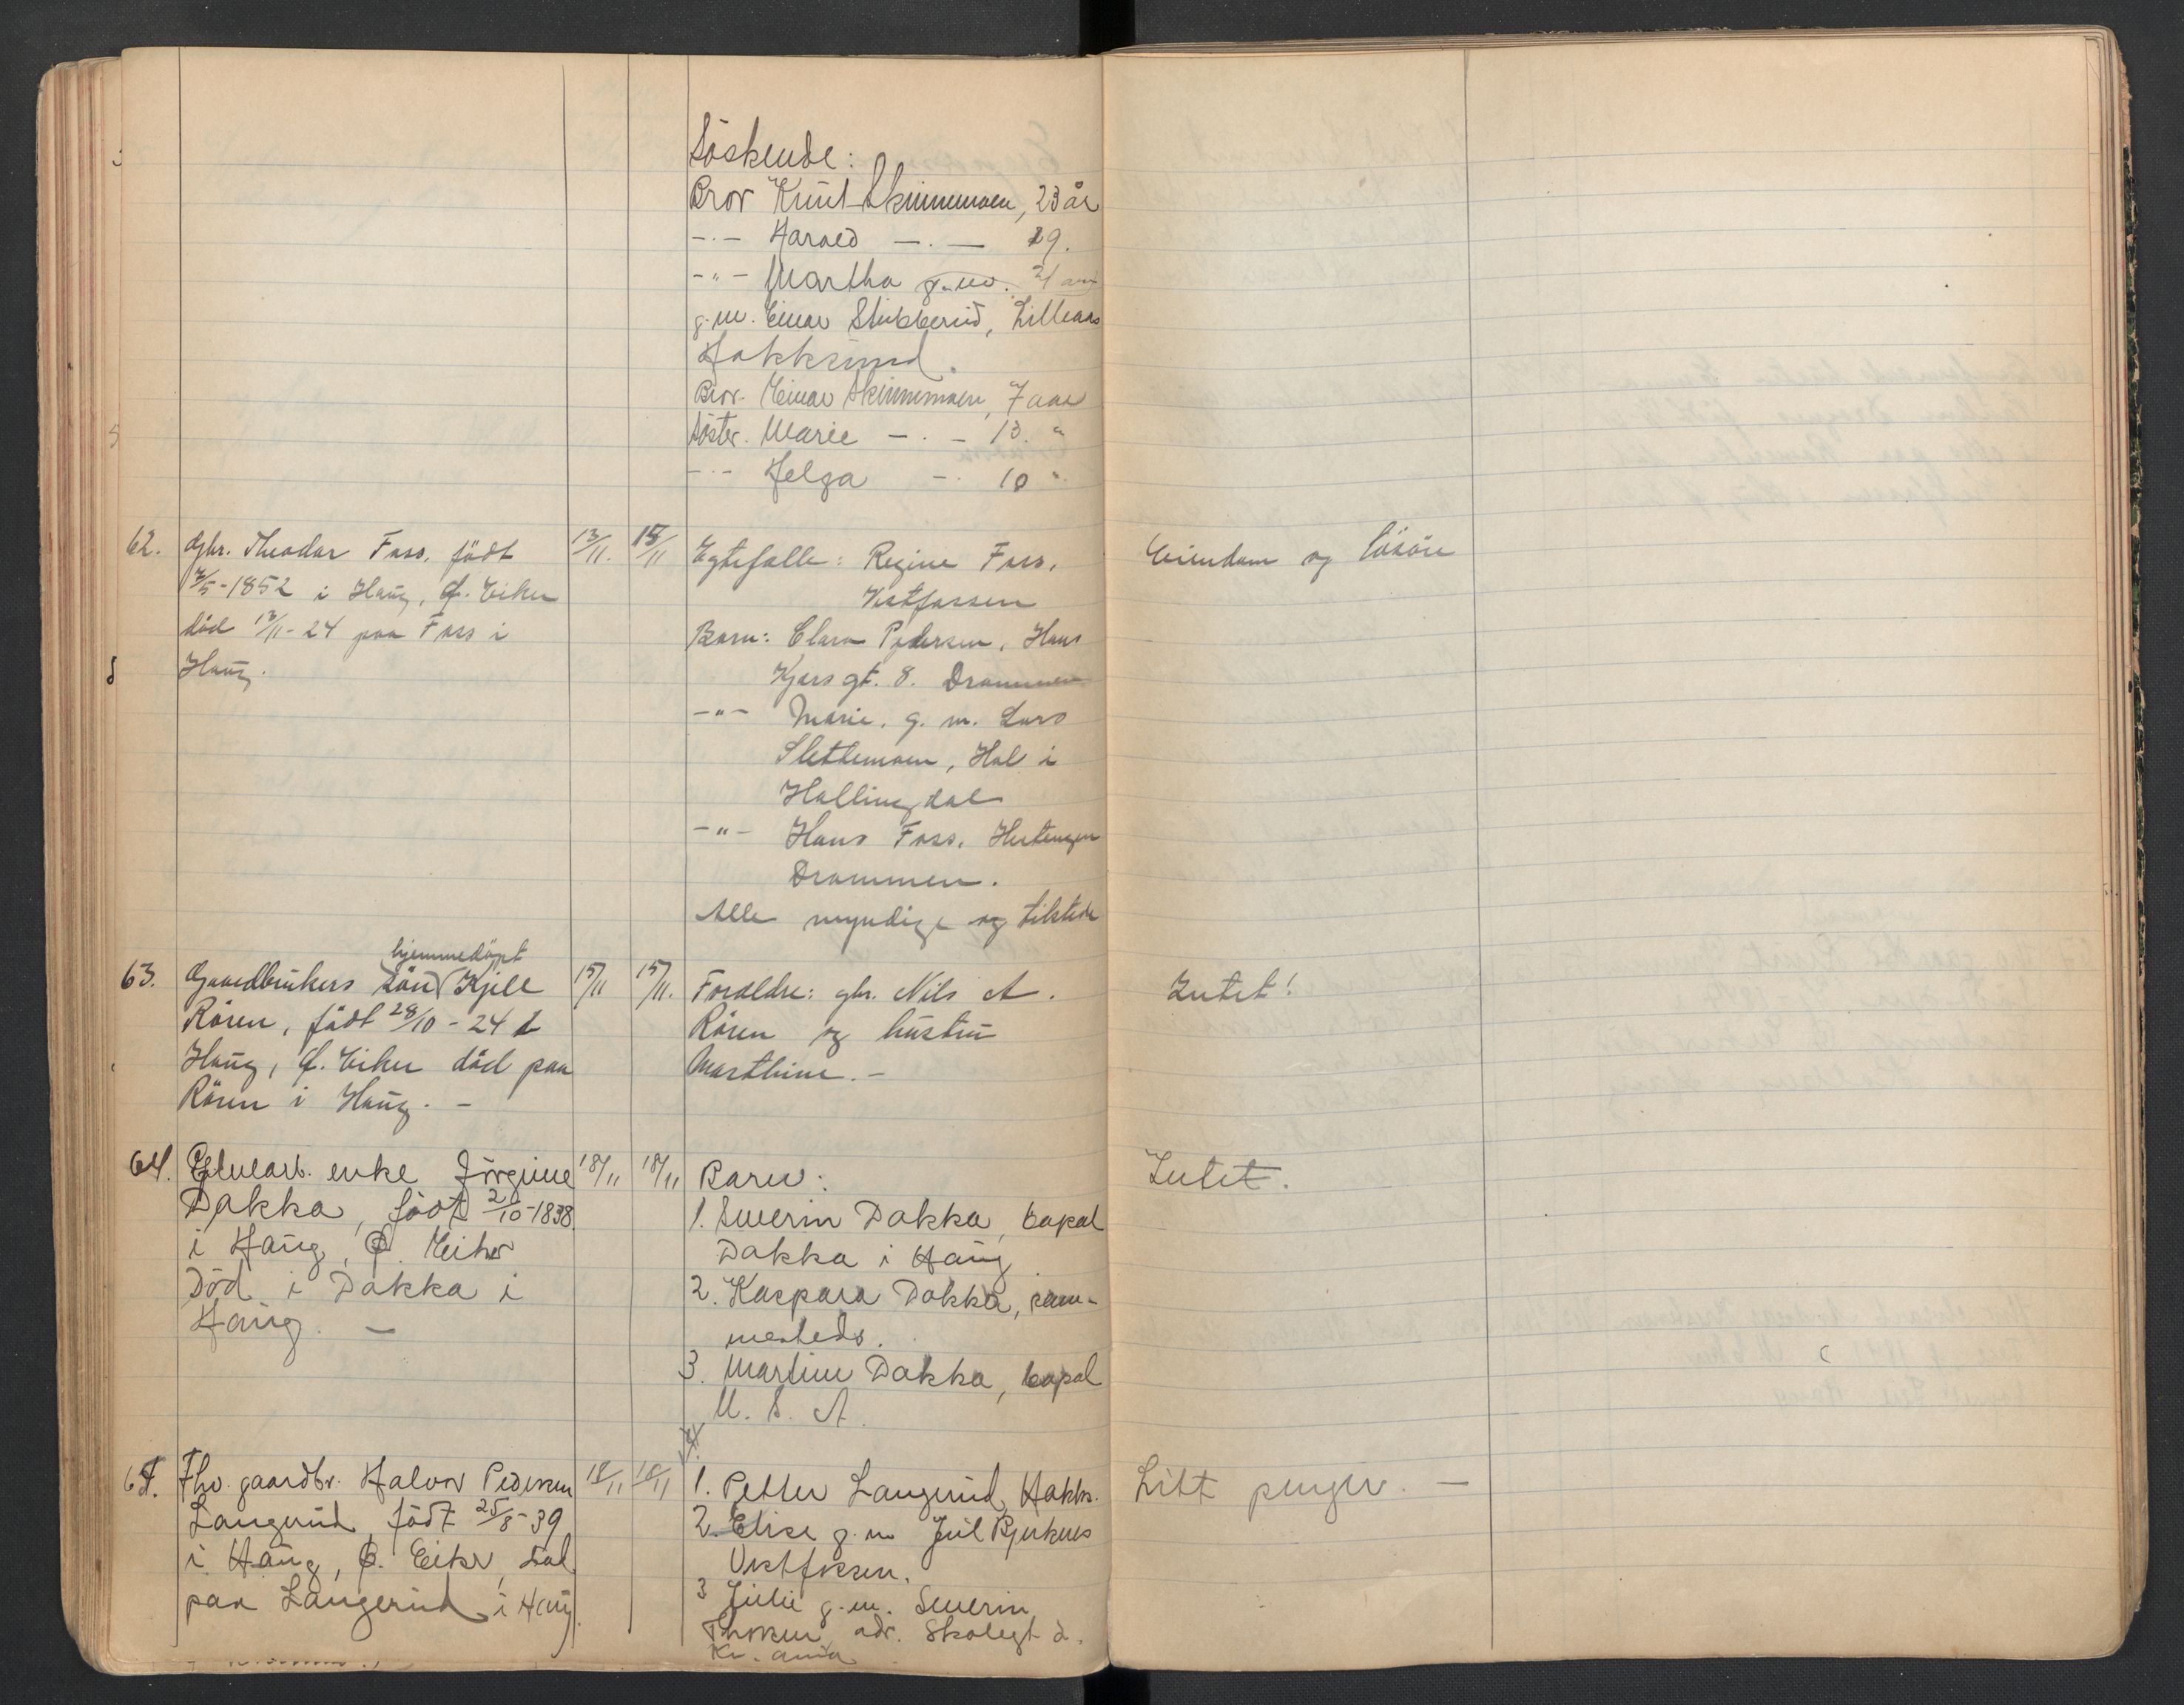 Söskende:
Bror Knut Skinnemoen, 23 år
-.- Harald -.- 19.
-"- Martha g.m. 21 aar
g.m. Einar Stubberud, Lilleaas
Hokksund.
Bror. Einar Skinnemoen, 7 aar
Söster. Marie -.- 13. "
-.- Helga -. 10 "
62. Gbr. Theodor Foss, född 13/11. 18/11 Egtefelle: Regine Foss, Eiendom og lösöre
/5-1852 i Haug, Ø. Eiker Vestfossen
död 13/11-24 paa Foss i Barn: Clara Pedersen, Hans
Haug. Kjærs gt. 8. Drammen
-"- Marie. g. m. Lars
Slettemoen, Hol i
Hallingdal
-"- Hans Foss,
Drammen.
Alle myndige og tilstede
hjemmedöpt
63. Gaardbrukers sön Kjell 15/11 15/11. Foreldre: gbr. Nils A. Intet!
Rören, född 28/10-24 i Rören og hustru
Haug, Ø. Eiker död paa Marthine.-
Rören i Haug. -
64. enke Jörgine 18/11 18/11 Barn: Intet.
Dokka, född 2/10-1838 1. Severin Dokka, bopæl
i Haug, Ø. Eiker Dokka i Haug
Död i Dokka i 2. Kaspara Dokka, sam-
Haug. - mesteds.
3. Martin Dokka, bopæl
U. S. A.
65. Fhv. gaardbr. Halvor Pedersen 18/11 18/11 1. Petter Langerud, Hokks. Litt penger. -
Langerud, född 25/8-39 2. Elise g.m Juil Bjerknes
i Haug, Ø. Eiker, död Vestfossen.
paa Langerud i Haug. 3 Julie g.m. Severin
Thorsen adr. Skolegt 2.
Kr. ania